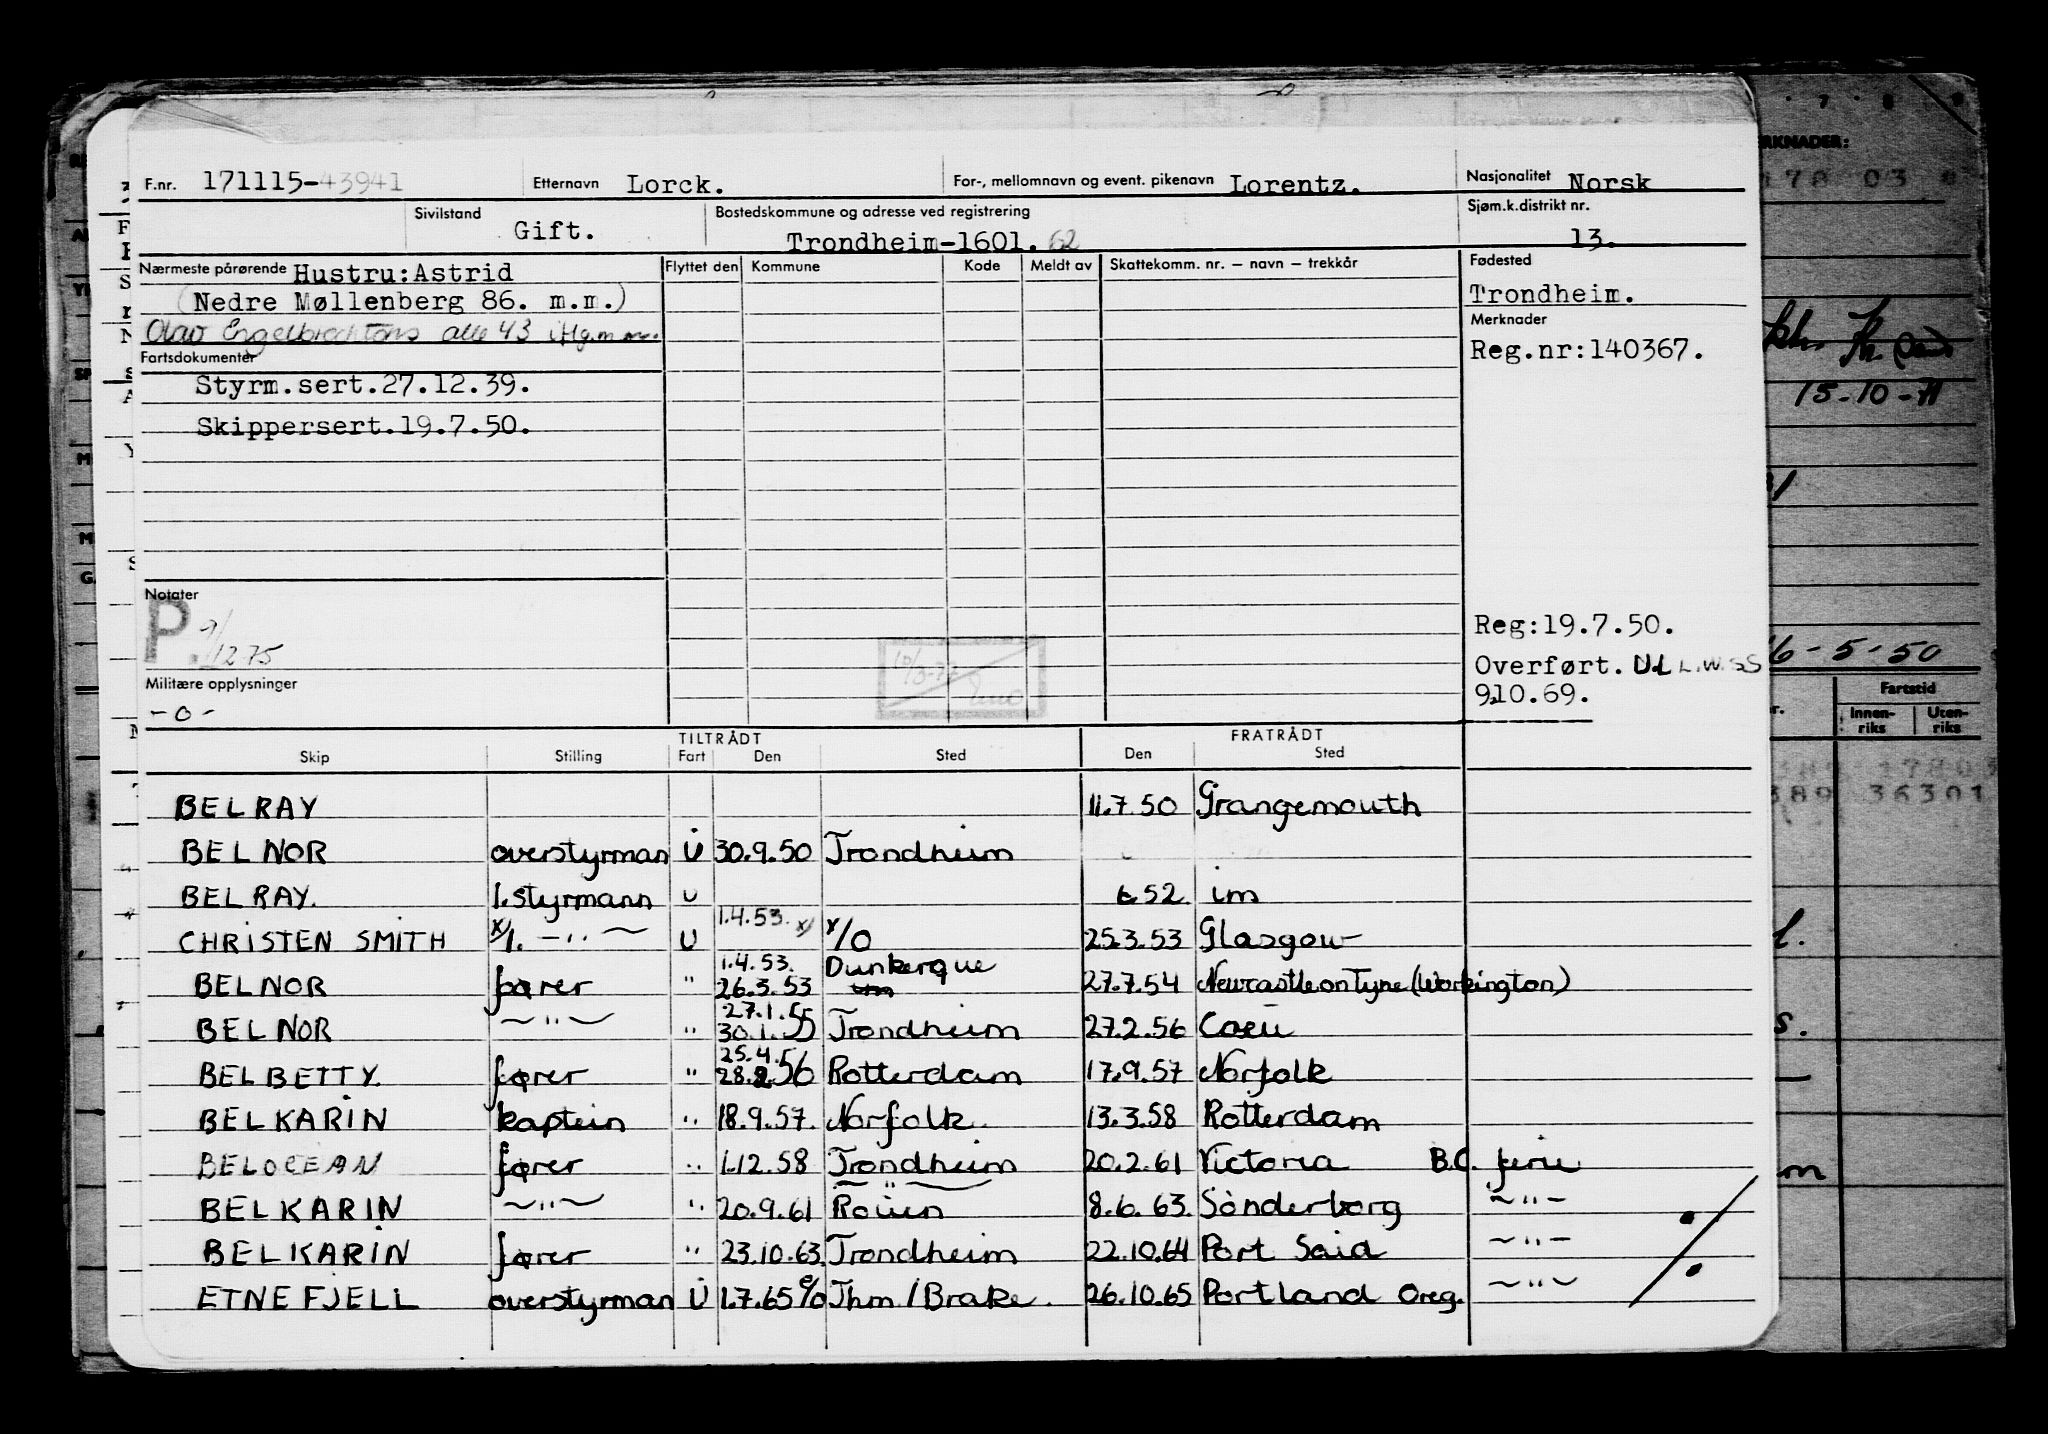 F.nr. 171115-43941 Etternavn Lorck. For-, mellomnavn og event. pikenavn Lorentz. Nasjonalitet Norsk
Sivilstand Gift. Bostedskommune og adresse ved registrering Trondheim-1601. 62 Sjøm.k.distrikt nr. 13.
Nærmeste pårørende Hustru:Astrid Flyttet den Kommune Kode Meldt av Skattekomm. nr. – navn – trekkår Fødested
(Nedre Møllenberg 86. m.m.) Trondheim.
Olav Engelbrechtsons alle 43 Merknader
Reg.nr:140367.
Fartsdokumenter
Styrm.sert.27.12.39.
Skippersert.19.7.50.
Notater
P. 9/12 75
Reg:19.7.50.
Overført.
9.10.69.
Militære opplysninger
- o -
TILTRÅDT FRATRÅDT
Skip Stilling Fart Den Sted Den Sted
BELRAY 11.7.50 Grangemouth
BELNOR overstyrman U 30.9.50 Trondheim
BELRAY. 1.styrmann U 52 im
CHRISTEN SMITH x/1. — " — U 1.4.53. x/ x/0 25.3.53 Glasgow
BELNOR fører " 1.4.53. 26.3.53 Dunkerque 27.7.54 Newcastle on Tyne (Workington)
BELNOR — " — " 27.1.55 30.1.55 Trondheim 27.2.56
BELBETTY. fører " 25.4.56 28.2.56 Rotterdam 17.9.57 Norfolk
BELKARIN kaptein " 18.9.57. Norfolk. 13.3.58 Rotterdam
BELOCEAN fører " 1.12.58 Trondheim 20.2.61 Victoria B.C. ferie
BELKARIN — " — " 20.9.61 Rouen 8.6.63. Sønderborg — " —
BELKARIN fører " 23.10.63. Trondheim 22.10.64 Port Said — " —
ETNEFJELL overstyrman U 1.7.65 Thm/Brake. 26.10.65 Portland Oreg. — " —
15-10-71
6-5-50
Fartstid
Innen-riks Uten-riks